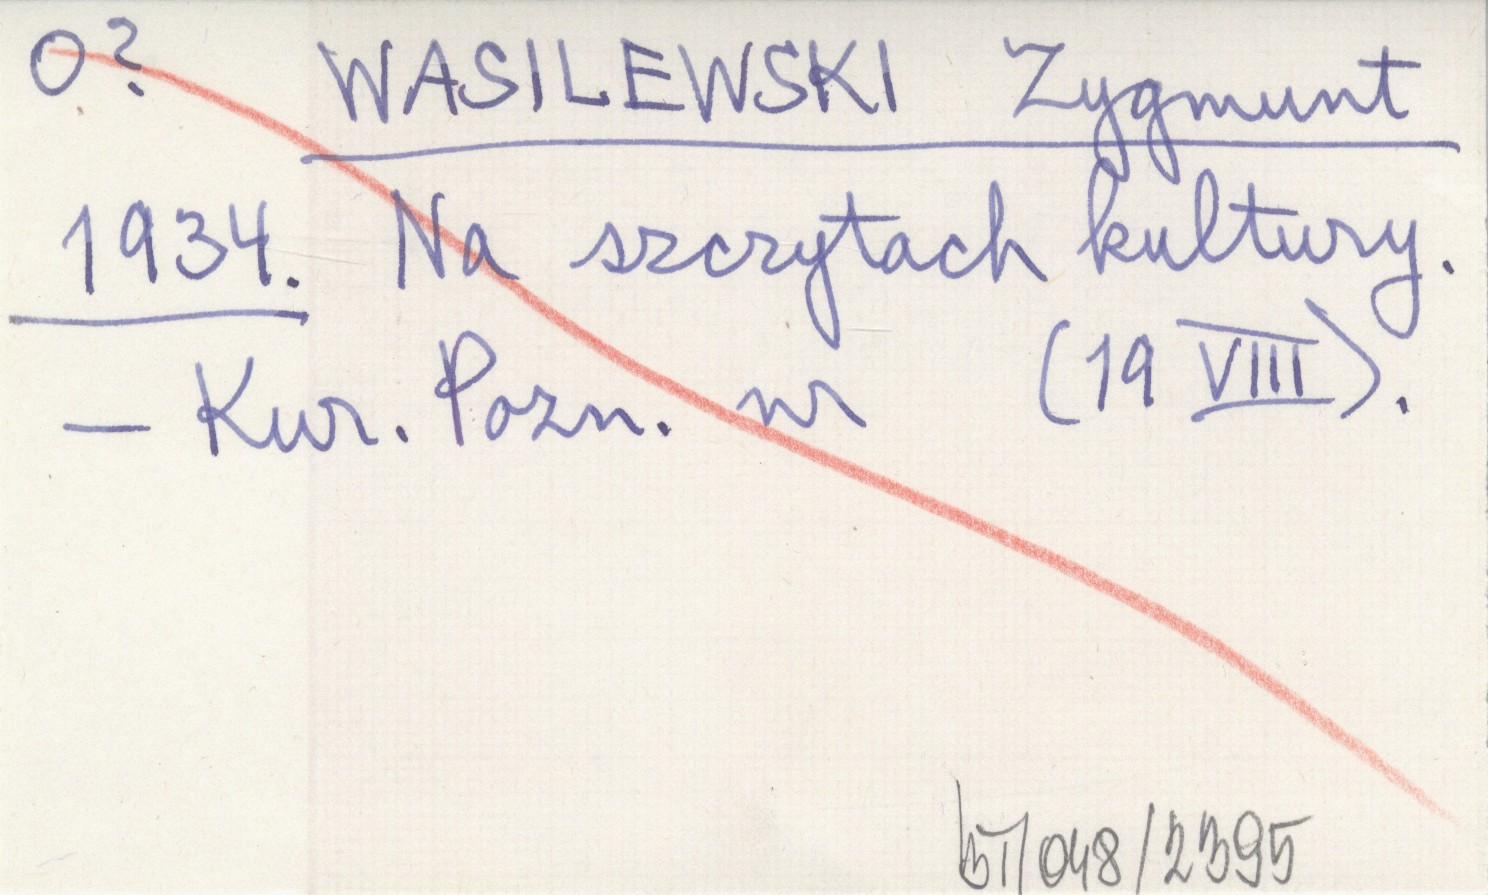 O? WASILEWSKI Zygmunt
1934. Na szczytach kultury.
— Kur. Pozn. nr (19 VIII).
/048/2395